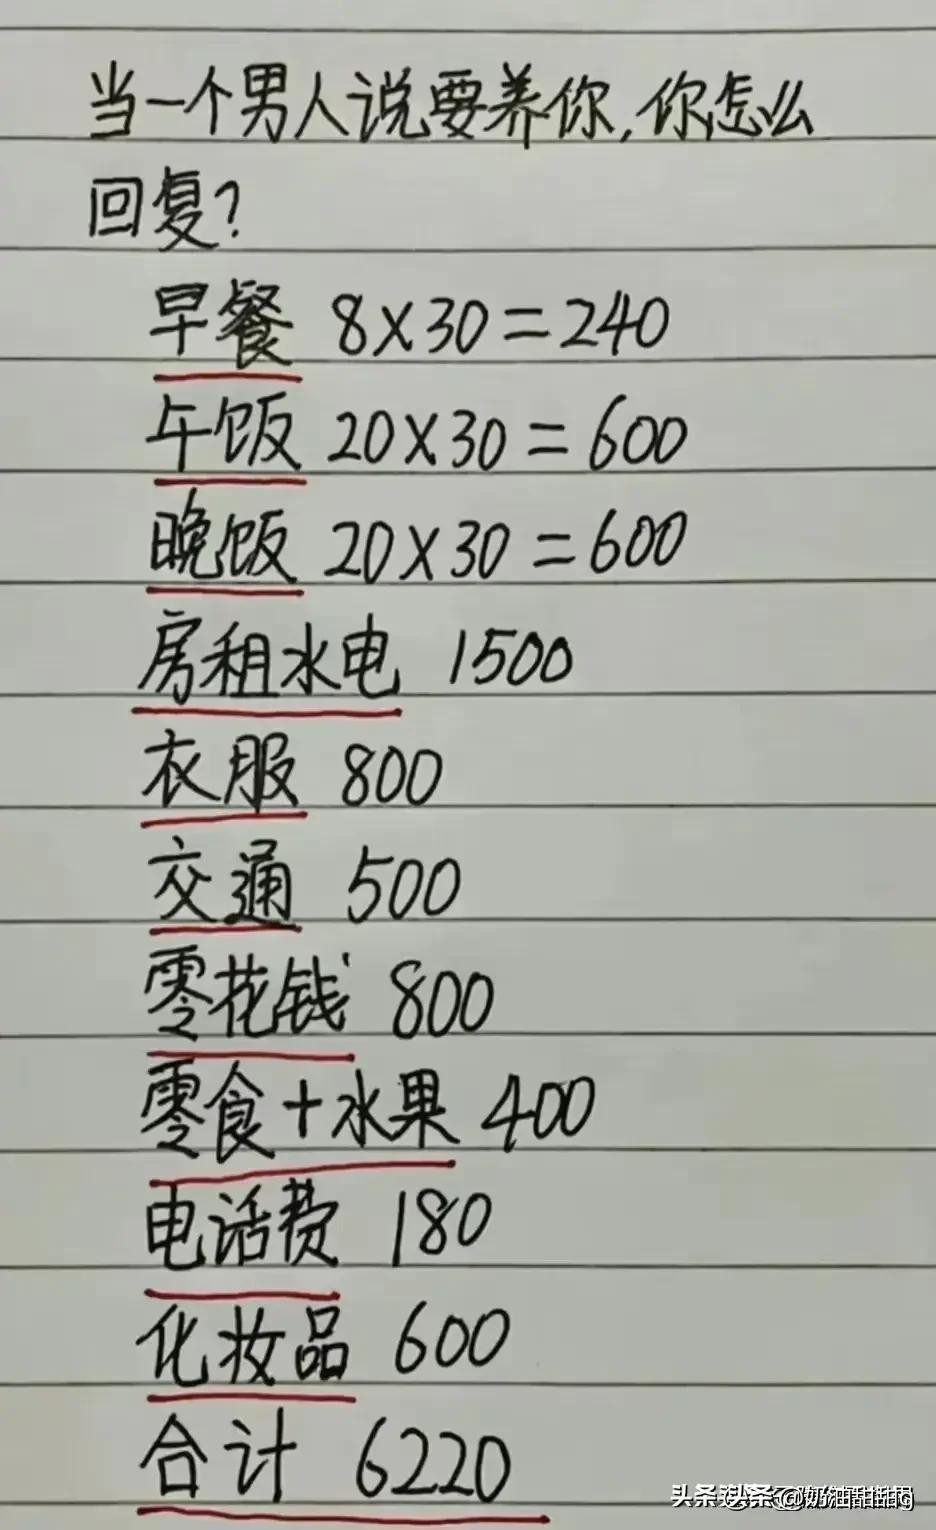 当一个男人说要养你,你怎么
回复?
早餐 8×30=240
午饭 20×30=600
晚饭 20×30=600
房租水电 1500
衣服 800
交通 500
零花钱 800
零食+水果 400
电话费 180
化妆品 600
合计 6220
头条 @奶油甜甜